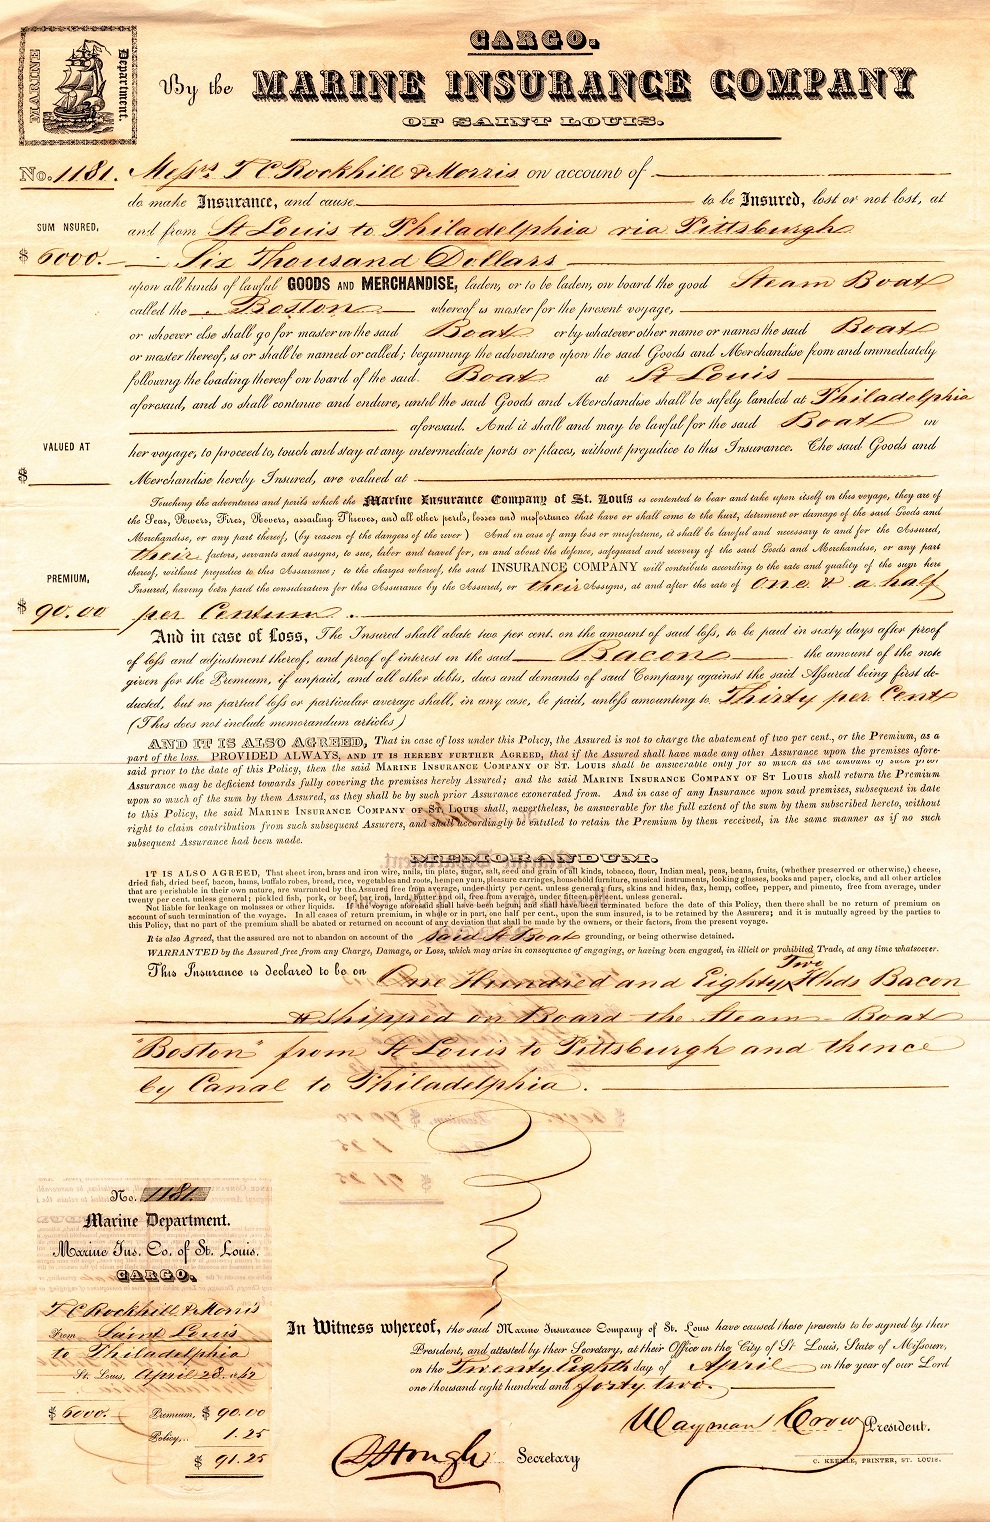 CARGO.
MARINE Department.
By the MARINE INSURANCE COMPANY
OF SAINT LOUIS.
No. 1181. Messrs T C Rockhill & Morris on account of
do make Insurance, and cause to be Insured, lost or not lost, at
SUM NSURED,
and from St Louis to Philadelphia via Pittsburgh
$ 6000. Six Thousand Dollars
upon all kinds of lawful GOODS AND MERCHANDISE, laden, or to be laden, on board the good Steam Boat
called the Boston whereof is master for the present voyage,
or whoever else shall go for master in the said Boat or by whatever other name or names the said Boat
or master thereof, is or shall be named or called; beginning the adventure upon the said Goods and Merchandise from and immediately
following the loading thereof on board of the said Boat at St Louis
aforesaid, and so shall continue and endure, until the said Goods and Merchandise shall be safely landed at Philadelphia
aforesaid. And it shall and may be lawful for the said Boat in
VALUED AT
her voyage, to proceed to, touch and stay at any intermediate ports or places, without prejudice to this Insurance. The said Goods and
$ Merchandise hereby Insured, are valued at
Touching the adventures and perils which the Marine Insurance Company of St. Louis is contented to bear and take upon itself in this voyage, they are of
the Seas, Rivers, Fires, Rovers, assailing Thieves, and all other perils, losses and misfortunes that have or shall come to the hurt, detriment or damage of the said Goods and
Merchandise, or any part thereof, (by reason of the dangers of the river) And in case of any loss or misfortune, it shall be lawful and necessary to and for the Assured,
their factors, servants and assigns, to sue, labor and travel for, in and about the defence, safeguard and recovery of the said Goods and Merchandise, or any part
thereof, without prejudice to this Assurance; to the charges whereof, the said INSURANCE COMPANY will contribute according to the rate and quality of the sum here
PREMIUM,
Insured, having been paid the consideration for this Assurance by the Assured, or their Assigns, at and after the rate of one & a half
$ 90.00 per Centum
And in case of Loss, The Insured shall abate two per cent. on the amount of said loss, to be paid in sixty days after proof
of loss and adjustment thereof, and proof of interest in the said Bacon the amount of the note
given for the Premium, if unpaid, and all other debts, dues and demands of said Company against the said Assured being first de-
ducted, but no partial loss or particular average shall, in any case, be paid, unless amounting to Thirty per Cent
(This does not include memorandum articles)
AND IT IS ALSO AGREED, That in case of loss under this Policy, the Assured is not to charge the abatement of two per cent., or the Premium, as a
part of the loss. PROVIDED ALWAYS, AND IT IS HEREBY FURTHER AGREED, that if the Assured shall have made any other Assurance upon the premises afore-
said prior to the date of this Policy, then the said MARINE INSURANCE COMPANY OF ST. LOUIS shall be answerable only for so much as the amount of such prior
Assurance may be deficient towards fully covering the premises hereby Assured; and the said MARINE INSURANCE COMPANY OF ST LOUIS shall return the Premium
upon so much of the sum by them Assured, as they shall be by such prior Assurance exonerated from. And in case of any Insurance upon said premises, subsequent in date
to this Policy, the said MARINE INSURANCE COMPANY OF ST. LOUIS shall, nevertheless, be answerable for the full extent of the sum by them subscribed hereto, without
right to claim contribution from such subsequent Assurers, and shall accordingly be entitled to retain the Premium by them received, in the same manner as if no such
subsequent Assurance had been made.
MEMORANDUM.
IT IS ALSO AGREED, That sheet iron, brass and iron wire, nails, tin plate, sugar, salt, seed and grain of all kinds, tobacco, flour, Indian meal, peas, beans, fruits, (whether preserved or otherwise,) cheese,
dried fish, dried beef, bacon, hams, buffalo robes, bread, rice, vegetables and roots, hempen yarn, pleasure carriages, household furniture, musical instruments, looking glasses, books and paper, clocks, and all other articles
that are perishable in their own nature, are warranted by the Assured free from average, under thirty per cent. unless general; furs, skins and hides, flax, hemp, coffee, pepper, and pimento, free from average, under
twenty per cent. unless general; pickled fish, pork, or beef, bar iron, lard, butter and oil, free from average, under fifteen per cent. unless general.
Not liable for leakage on molasses or other liquids. If the voyage aforesaid shall have been begun, and shall have been terminated before the date of this Policy, then there shall be no return of premium on
account of such termination of the voyage. In all cases of return premium, in whole or in part, one half per cent, upon the sum insured, is to be retained by the Assurers; and it is mutually agreed by the parties to
this Policy, that no part of the premium shall be abated or returned on account of any deviation that shall be made by the owners, or their factors, from the present voyage.
It is also Agreed, that the assured are not to abandon on account of the said St Boat grounding, or being otherwise detained.
WARRANTED by the Assured free from any Charge, Damage, or Loss, which may arise in consequence of engaging, or having been engaged, in illicit or prohibited Trade, at any time whatsoever.
This Insurance is declared to be on One Hundred and Eighty Two Hhds Bacon
shipped on Board the Steam Boat
"Boston" from St Louis to Pittsburgh and thence
by Canal to Philadelphia.
No. 1181.
Marine Department.
Marine Ins. Co. of St. Louis.
CARGO.
T C Rockhill & Morris
From Saint Louis
to Philadelphia
St. Louis, April 28 1842
$ 6000. Premium, $ 90.00
Policy, 1.25
$ 91.25
In Witness whereof, the said Marine Insurance Company of St. Louis have caused these presents to be signed by their
President, and attested by their Secretary, at their Office in the City of St. Louis, State of Missouri,
on the Twenty Eighth day of April in the year of our Lord
one thousand eight hundred and forty two.
Wayman Crow President.
D Hough Secretary
C. KEEMLE, PRINTER, ST. LOUIS.